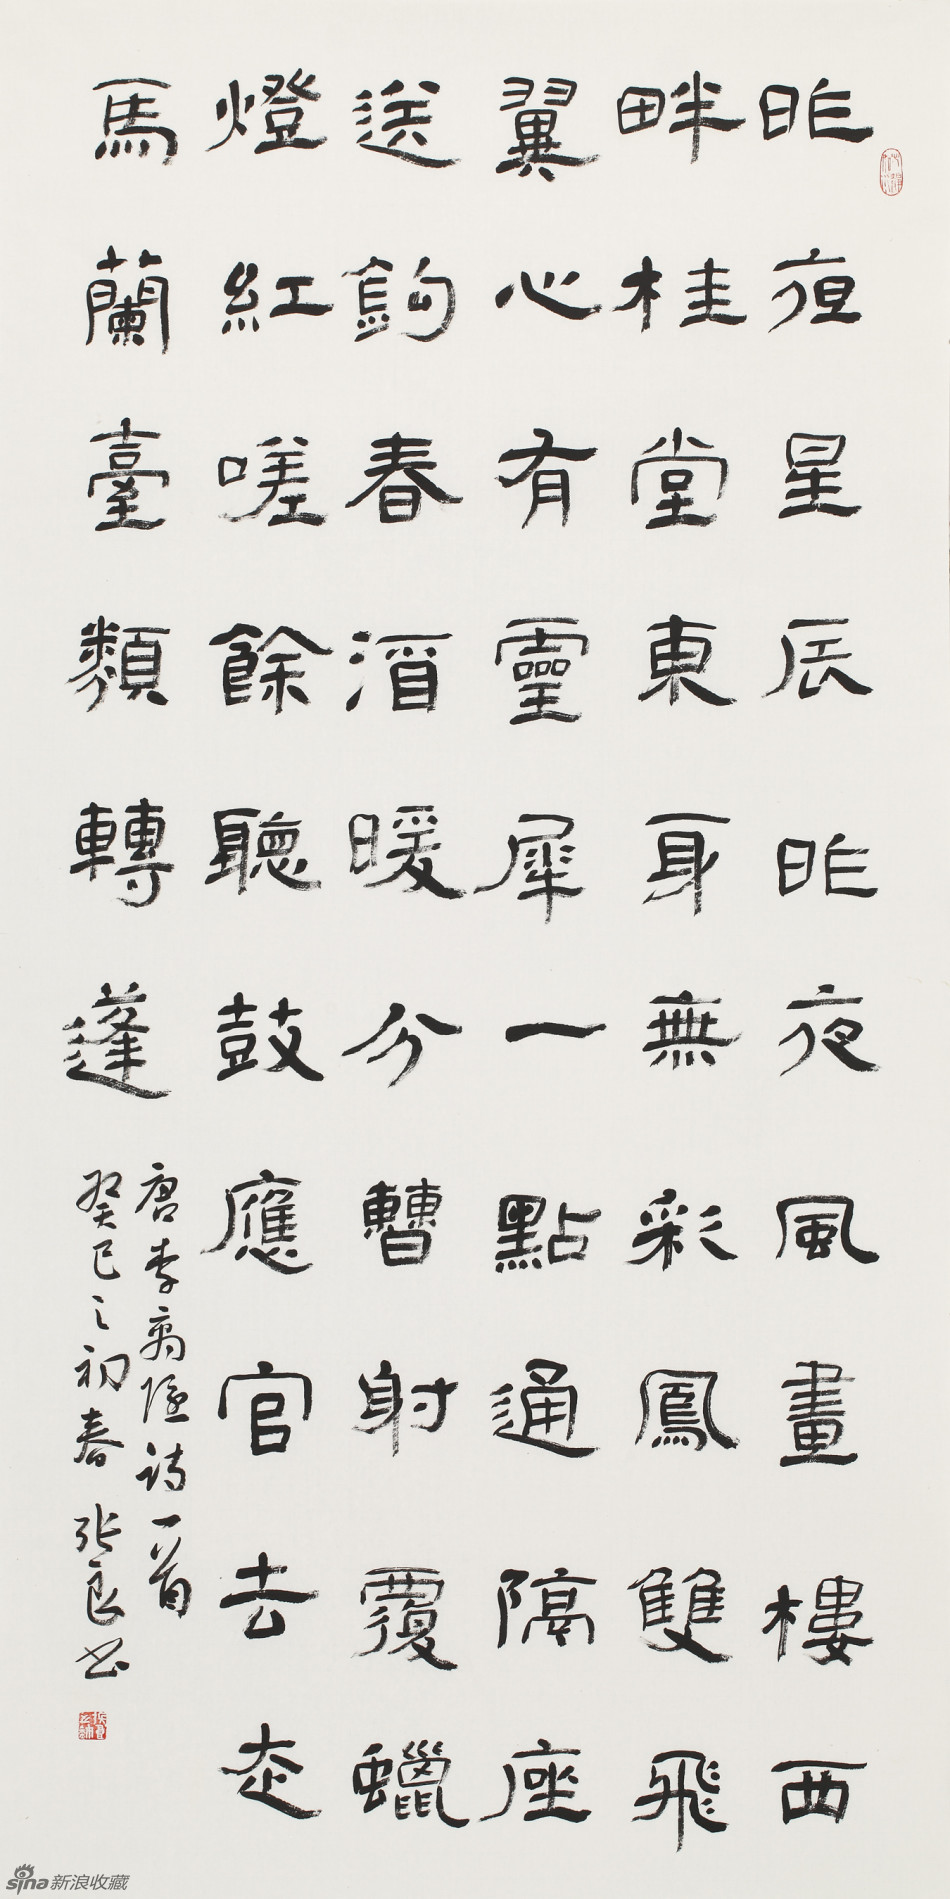 昨夜星辰昨夜風畫樓西
畔桂堂東身無彩鳳雙飛
翼心有靈犀一點通隔座
送鉤春酒暖分曹射覆蠟
燈紅嗟餘聽鼓應官去走
馬蘭臺類轉蓬
唐李商隱詩一首
癸巳之初春 張良书
sina新浪收藏